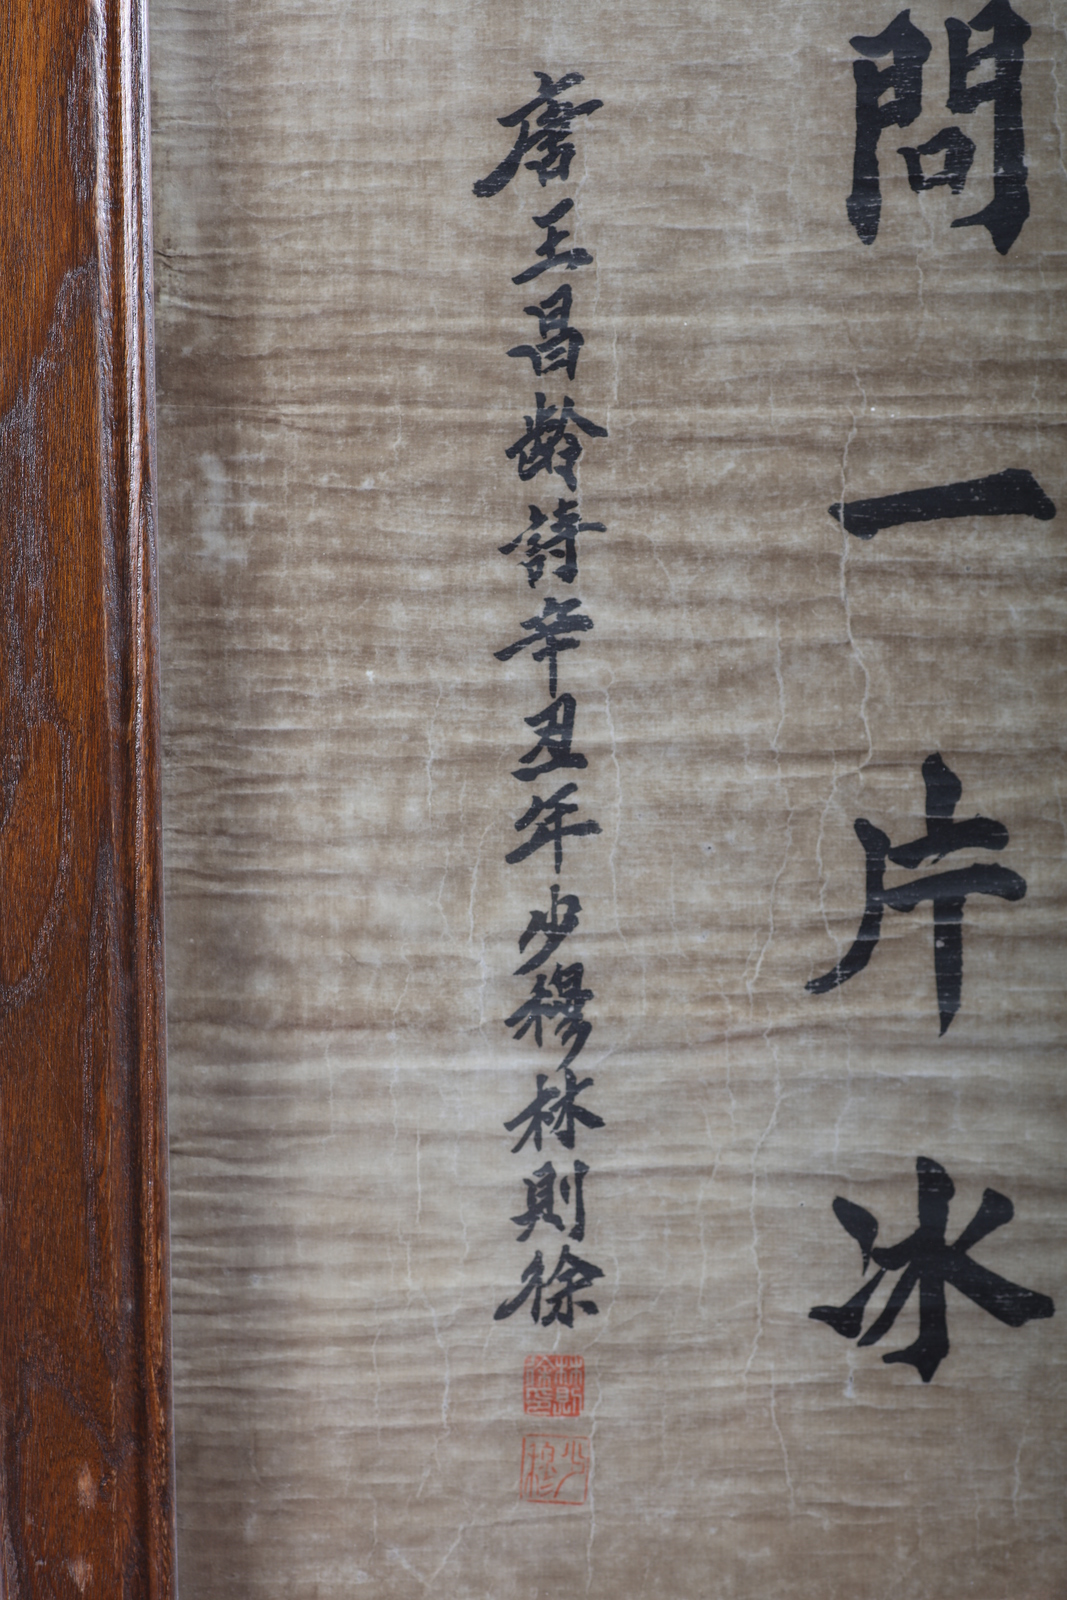 問一片冰
唐王昌齡詩辛丑年少穆林則徐
林則徐印
少穆